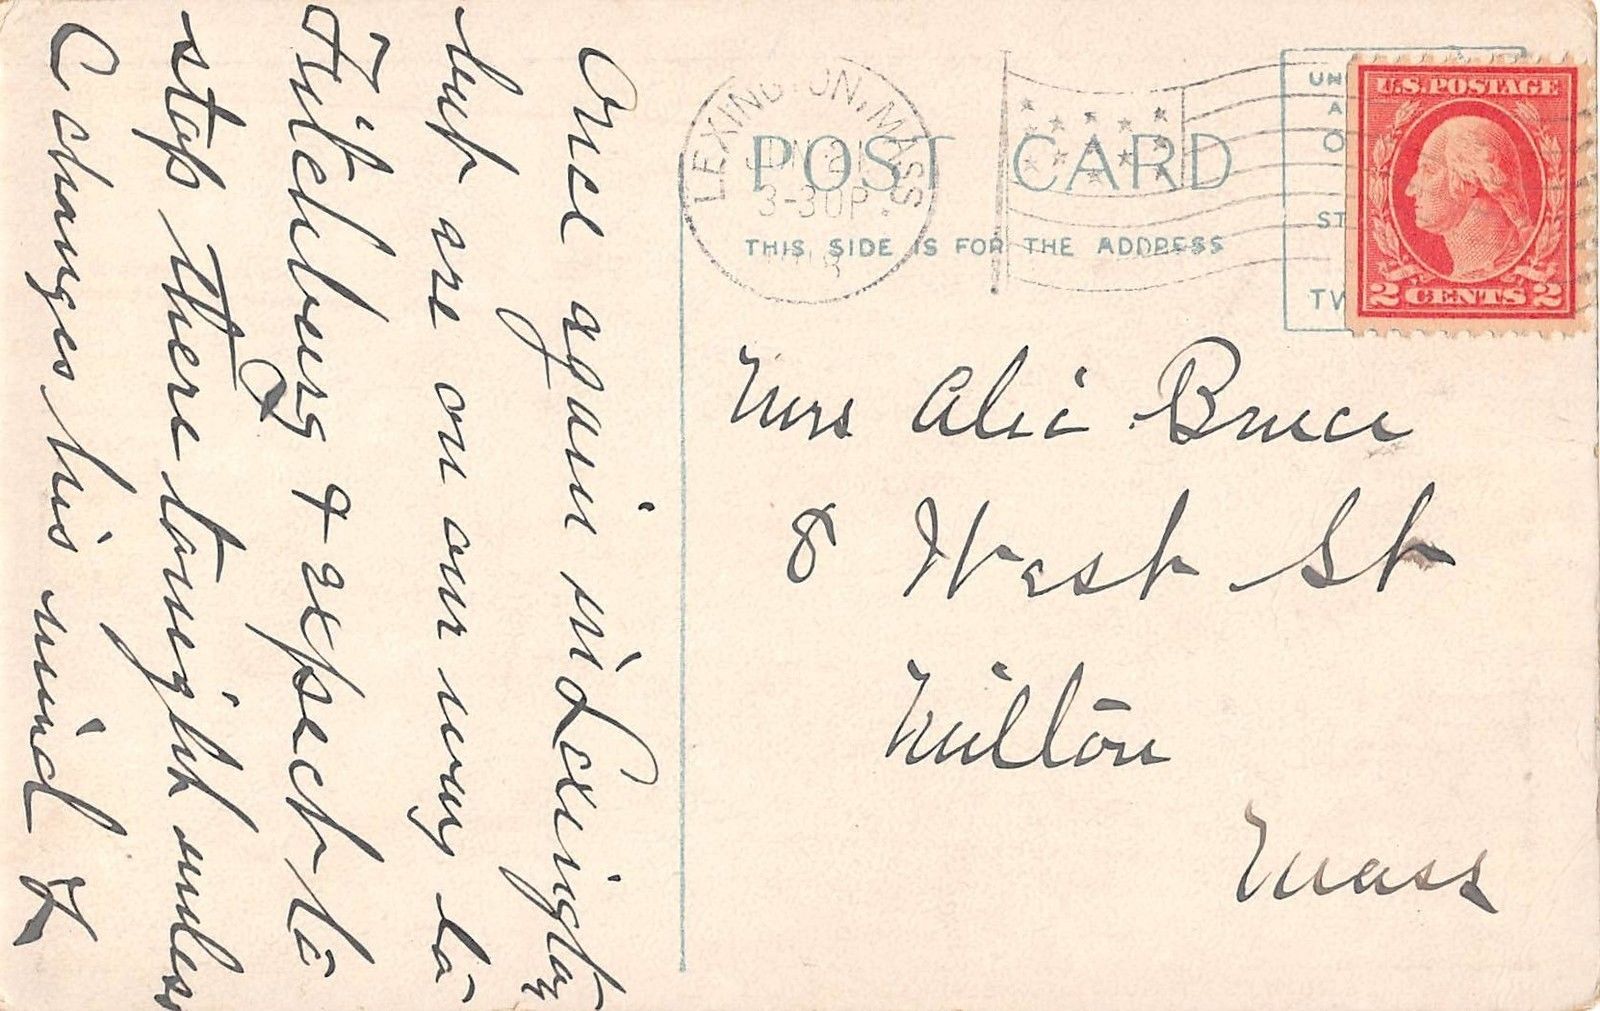 Once again in Lexington
but are on our way to
Fitchburg & expect to
stop there tonight unless
C changes his mind
LEXINGTON, MASS
3-30P
POST CARD
THIS SIDE IS FOR THE ADDRESS
U.S. POSTAGE
2 CENTS 2
Mrs Alic Bruce
8 West St
Milton
Mass